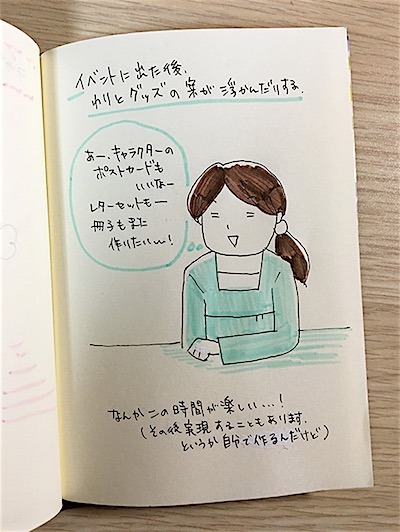 イベントに出た後、
わりとグッズの案が浮かんだりする。
あー、キャラクターの
ポストカードも
いいなー
レターセットもー
冊子もまた
作りたいｗ！
なんかこの時間が楽しい…！
(その後実現することもあります。
というか自分で作るんだけど)